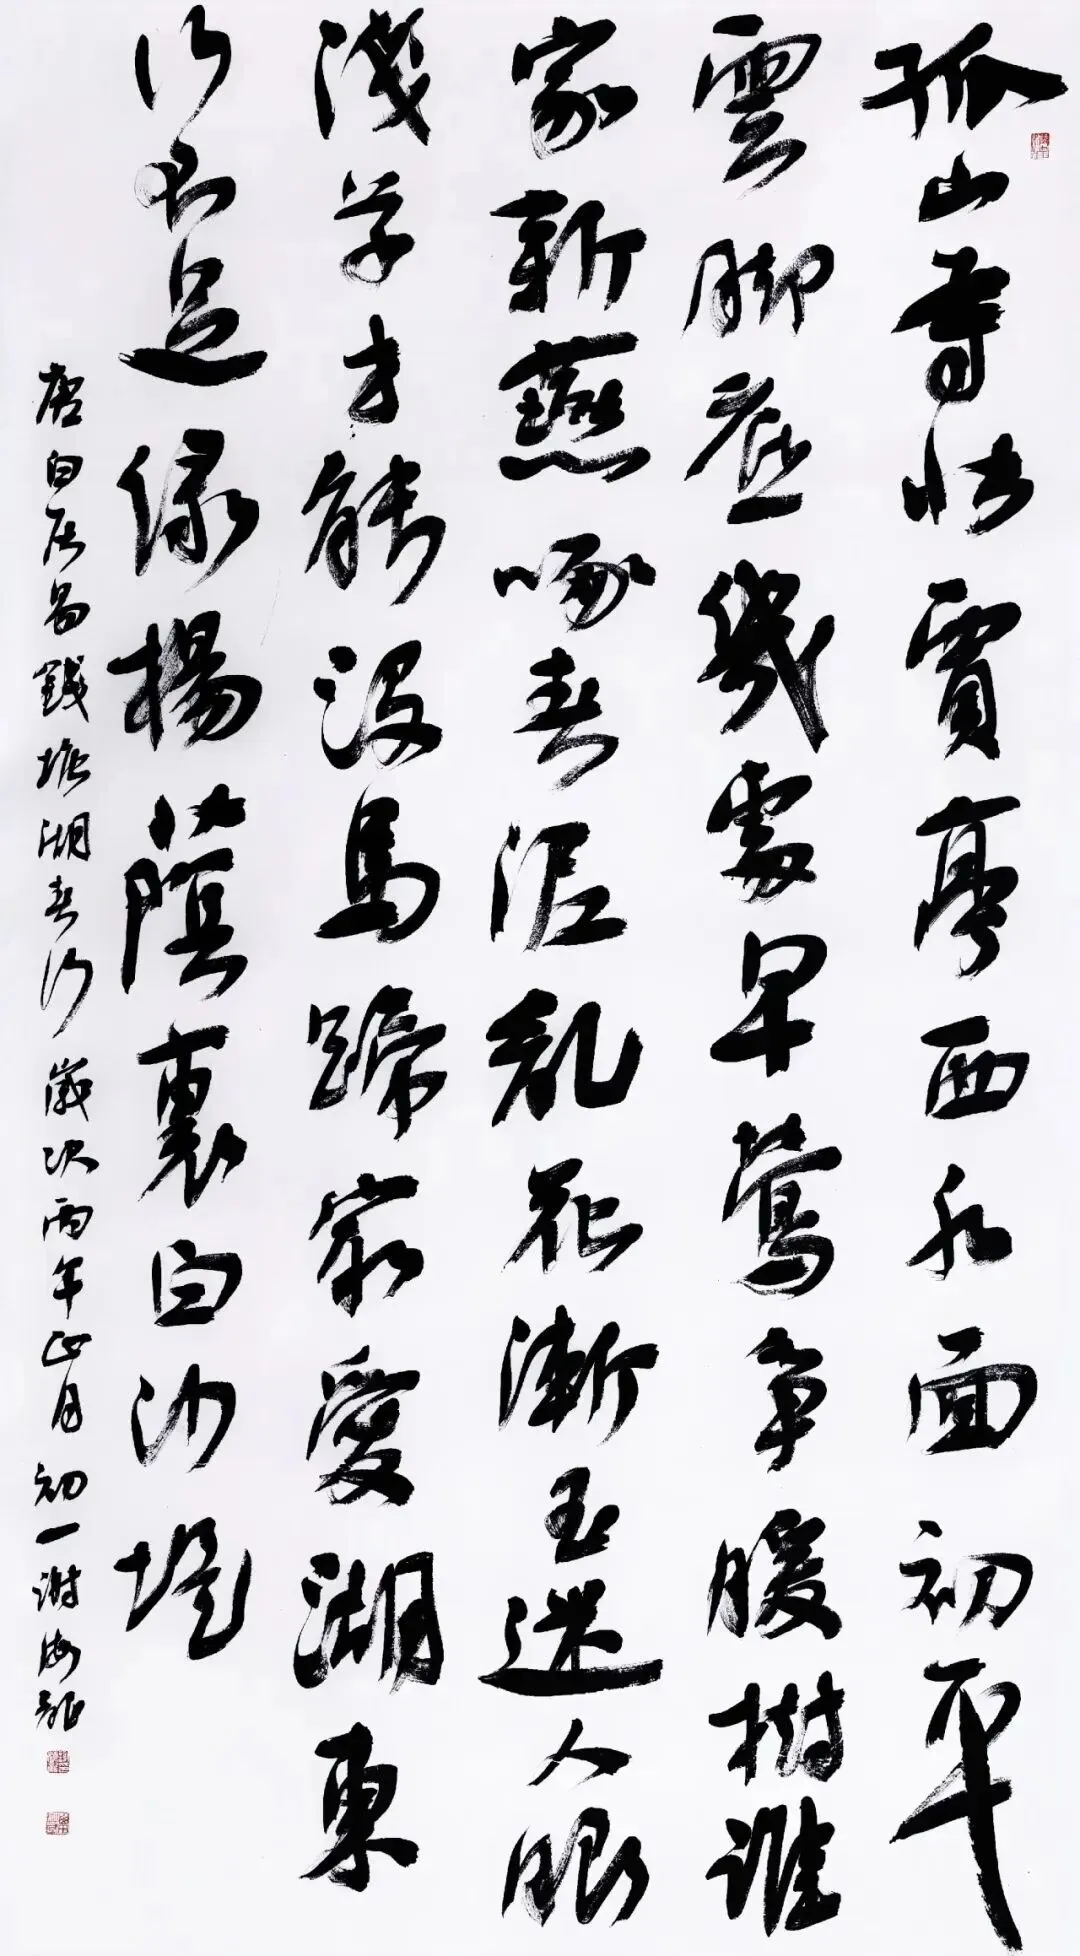 孤山寺北賈亭西水面初平
雲脚底幾處早鶯争暖樹誰
家新燕啄春泥乱花漸玉迷人眼
淺草才能沒馬蹄最愛湖東
行不足綠楊蔭裏白沙堤
唐白居易錢塘湖春行 歲次丙年正月初一 海龍